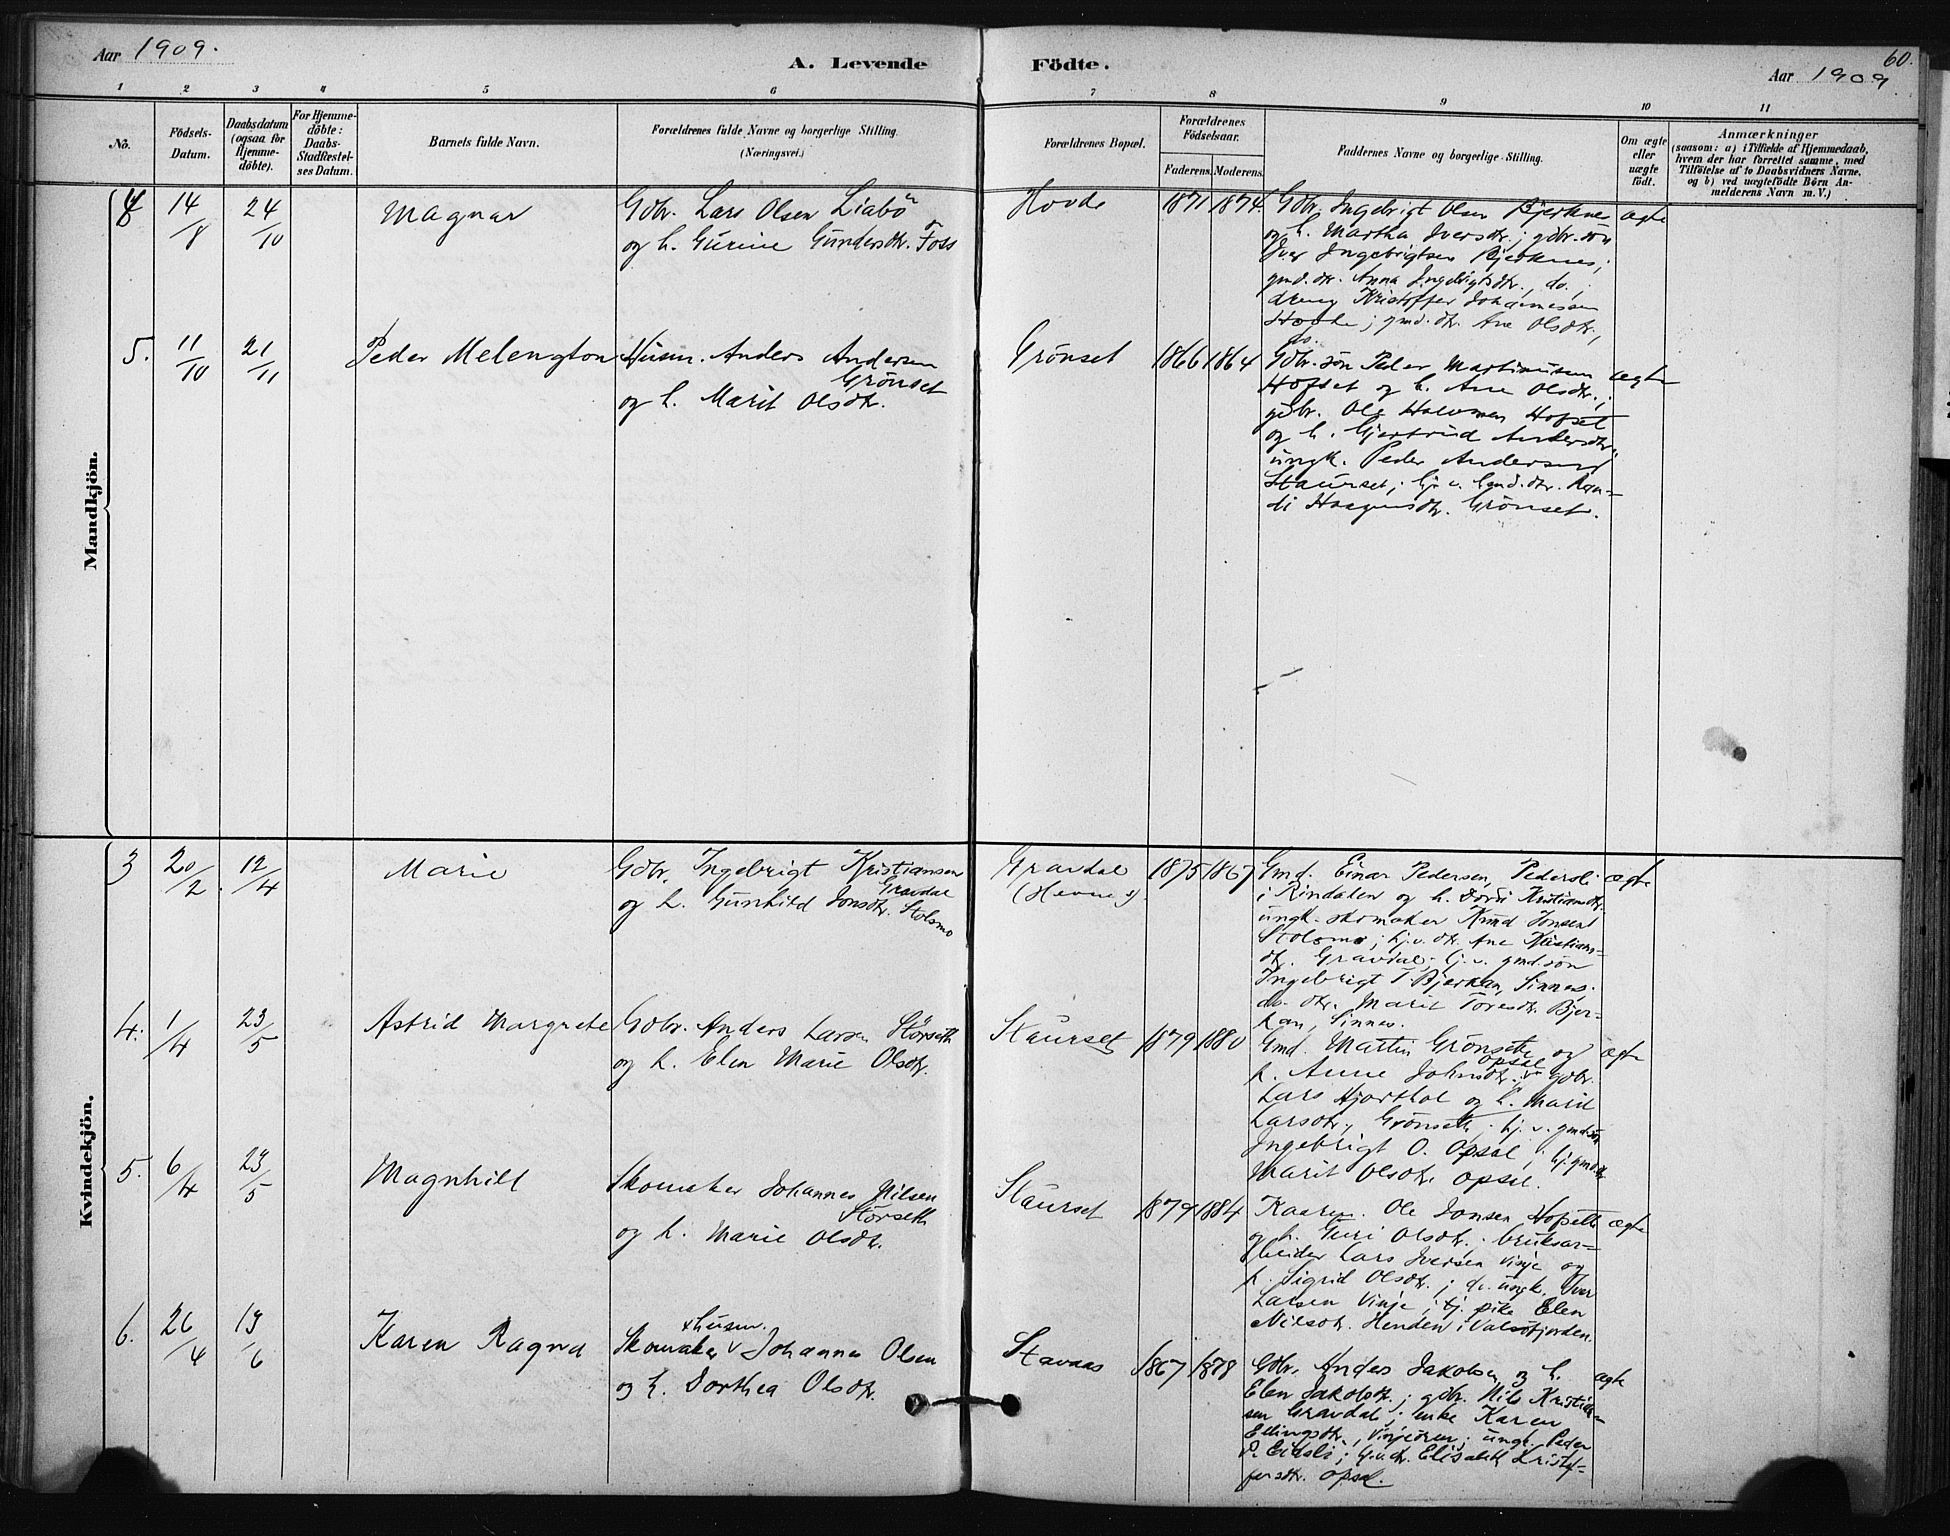 Aar 1909.
A. Levende Födte.
60.
Aar 1909
1 2 3 4 5 6 7 8 9 10 11
No.
Födsels-Datum.
Daabsdatum (ogsaa for Hjemme-döbte).
For Hjemme-döbte: Daabs-Stadfæstel-ses Datum.
Barnets fulde Navn.
Forældrenes fulde Navne og borgerlige Stilling. (Næringsvei.)
Forældrenes Bopæl.
Forældrenes Födselsaar.
Faderens. Moderens.
Faddernes Navne og borgerlige Stilling.
Om ægte eller uægte födt.
Anmærkninger
(saasom: a) i Tilfælde af Hjemmedaab,
hvem der har forrettet samme, med
Tilföielse af to Daabsvidners Navne,
og b) ved uægtefödte Börn An-
melderens Navn m. V.)
Mandkjön.
4 14/8 24/10 Magnar
Gdbr. Lars Olsen Liabö
og h. Gurine Gundersdtr. Foss
Hovde 1871 1874
Gdbr. Ingebrigt Olsen Bjerknes
og h. Martha Iversdtr.; gdbr. sön
Iver Ingebrigtsen Bjerknes;
gmd. dtr. Anna Ingebrigtsdtr., do.;
dreng Kristoffer Johannessen
Hovde; gmd. dtr. Ane Olsdtr.,
do.
ægte
5. 11/10 21/11 Peder Melengton
Husm. Anders Andersen
Grönset
og h. Marit Olsdtr.
Grönset 1866 1864
Gdbr. sön Peder Martinusen
Hofset og h. Ane Olsdtr.;
gdbr. Ole Halvorsen Hofset
og h. Gjertrud Andersdtr.
ungk. Peder Andersen
Staurset; hj. v. gmd. dtr. Ran-
di Haagensdtr. Grönset.
ægte
Kvindekjön.
3 20/2 12/4 Marie
Gdbr. Ingebrigt Kristiansen
Gravdal
og h. Gunhild Jonsdtr. Stolsmo
Gravdal
(Hevne s)
1875 1867
Gmd. Einar Pedersen, Pedersli
i Rindalen og h. Dordi Kristiansdtr.
ungk. skomaker Knud Jonsen
Stolsmo; hj. v. dtr. Ane Kristians-
dtr. Gravdal; hj. v. gmd. sön
Ingebrigt T. Bjerkan, Sinnes.
do. dtr. Marit Toresdtr. Bjer-
kan, Sinnes.
ægte
4. 1/4 23/5 Astrid Margrete
Gdbr. Anders Larsen Störseth
og h. Elen Marie Olsdtr.
Staurset 1879 1880
Gmd. Martin Grönseth og
Opsal
h. Anne Johnsdtr. gdbr.
Lars Hjorthol og h. Marit
Larsdtr. Grönseth; hj. v. gmd. sön
Ingebrigt O. Opsal; hj. gmd. dtr.
Marit Olsdtr. Opsal.
ægte
5. 6/4 23/5 Magnhild
Skomaker Johannes Nilsen
Störseth
og h. Marie Olsdtr.
Staurset 1879 1884
Kaarm. Ole Jonsen Hofseth
og h. Guri Olsdtr.; bruksar-
beider Lars Iversen Vinje og
h. Sigrid Olsdtr.; do. ungk. Iver
Larsen Vinje; tj. pike Elen
Nilsdtr. Henden i Valsöfjorden.
ægte
6. 26/4 13/6 Karen Ragna
x husm.
Skomaker v Johannes Olsen
og h. Dorthea Olsdtr.
Stavaas 1867 1878
Gdbr. Anders Jakobsen og h.
Elen Jakobsdtr.; gdbr. Nils Kristian-
sen Gravdal; enke Karen
Ellingsdtr., Vinjeören; ungk. Peder
P. Eidsli; hj. v. dtr. Elisabeth Kristof-
fersdtr. Opsal.
ægte